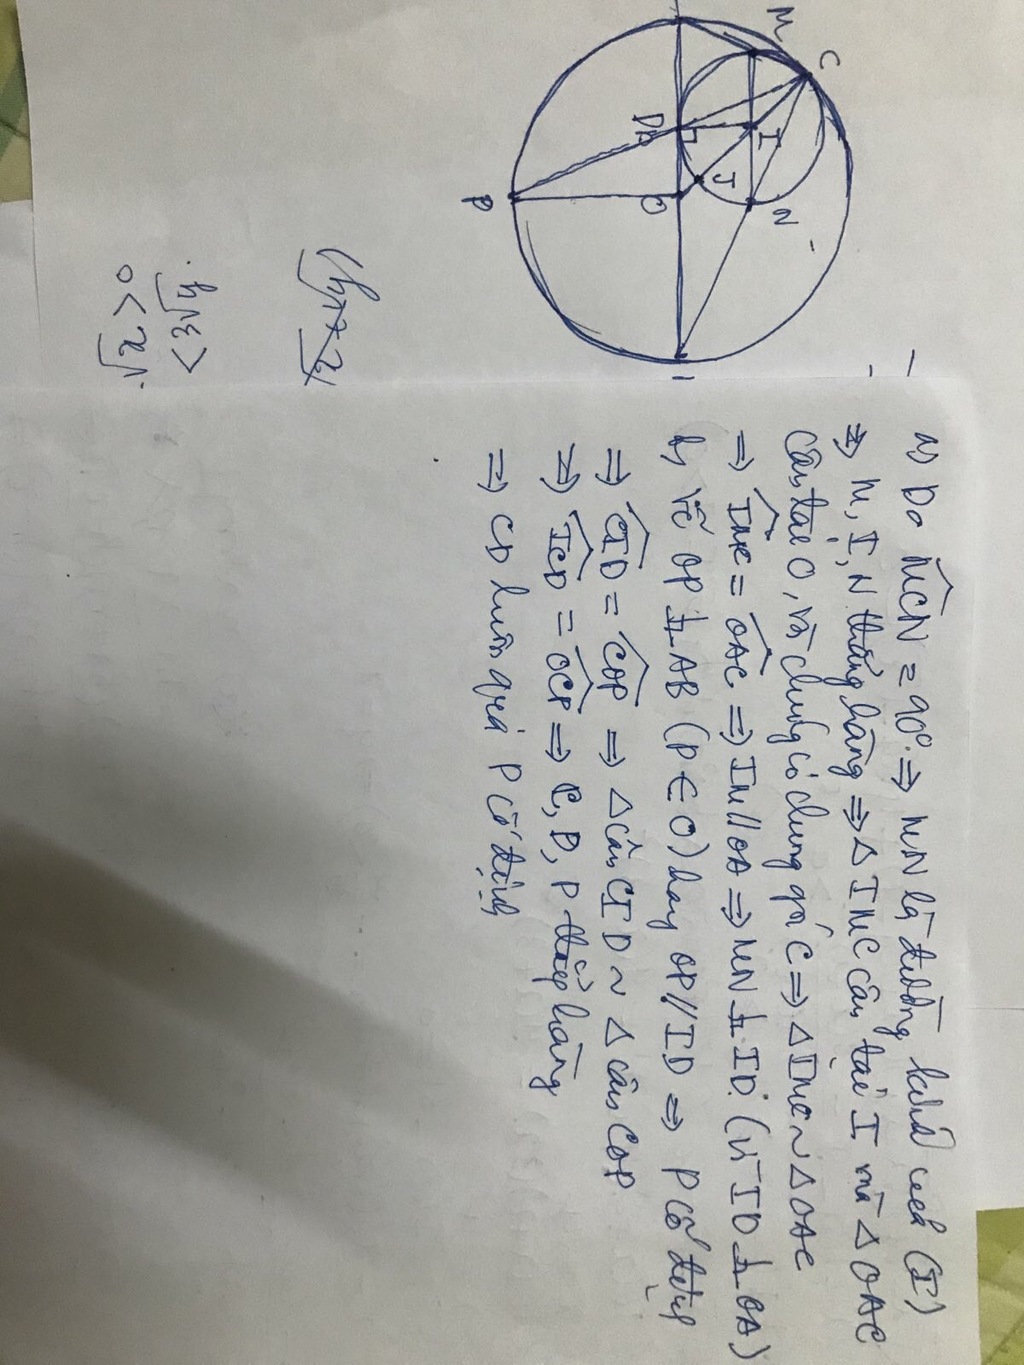 M
C
D
I
J
O
N
P
a) Do MCN = 90° => MN là đường kính của (I)
=> M, I, N thẳng hàng => Δ IMC cân tại I mà Δ OAC
cân tại O, và chúng có chung góc C => Δ IMC ~ Δ OAC
=> IMC = OAC => IM // OA => MN ⊥ ID. (vì ID ⊥ OA)
b, Vẽ OP ⊥ AB (P ∈ O) hay OP // ID => P cố định
=> CID = COP => Δ cân CID ~ Δ cân COP
=> ICD = OCP => C, D, P thẳng hàng
=> CD luôn qua P cố định